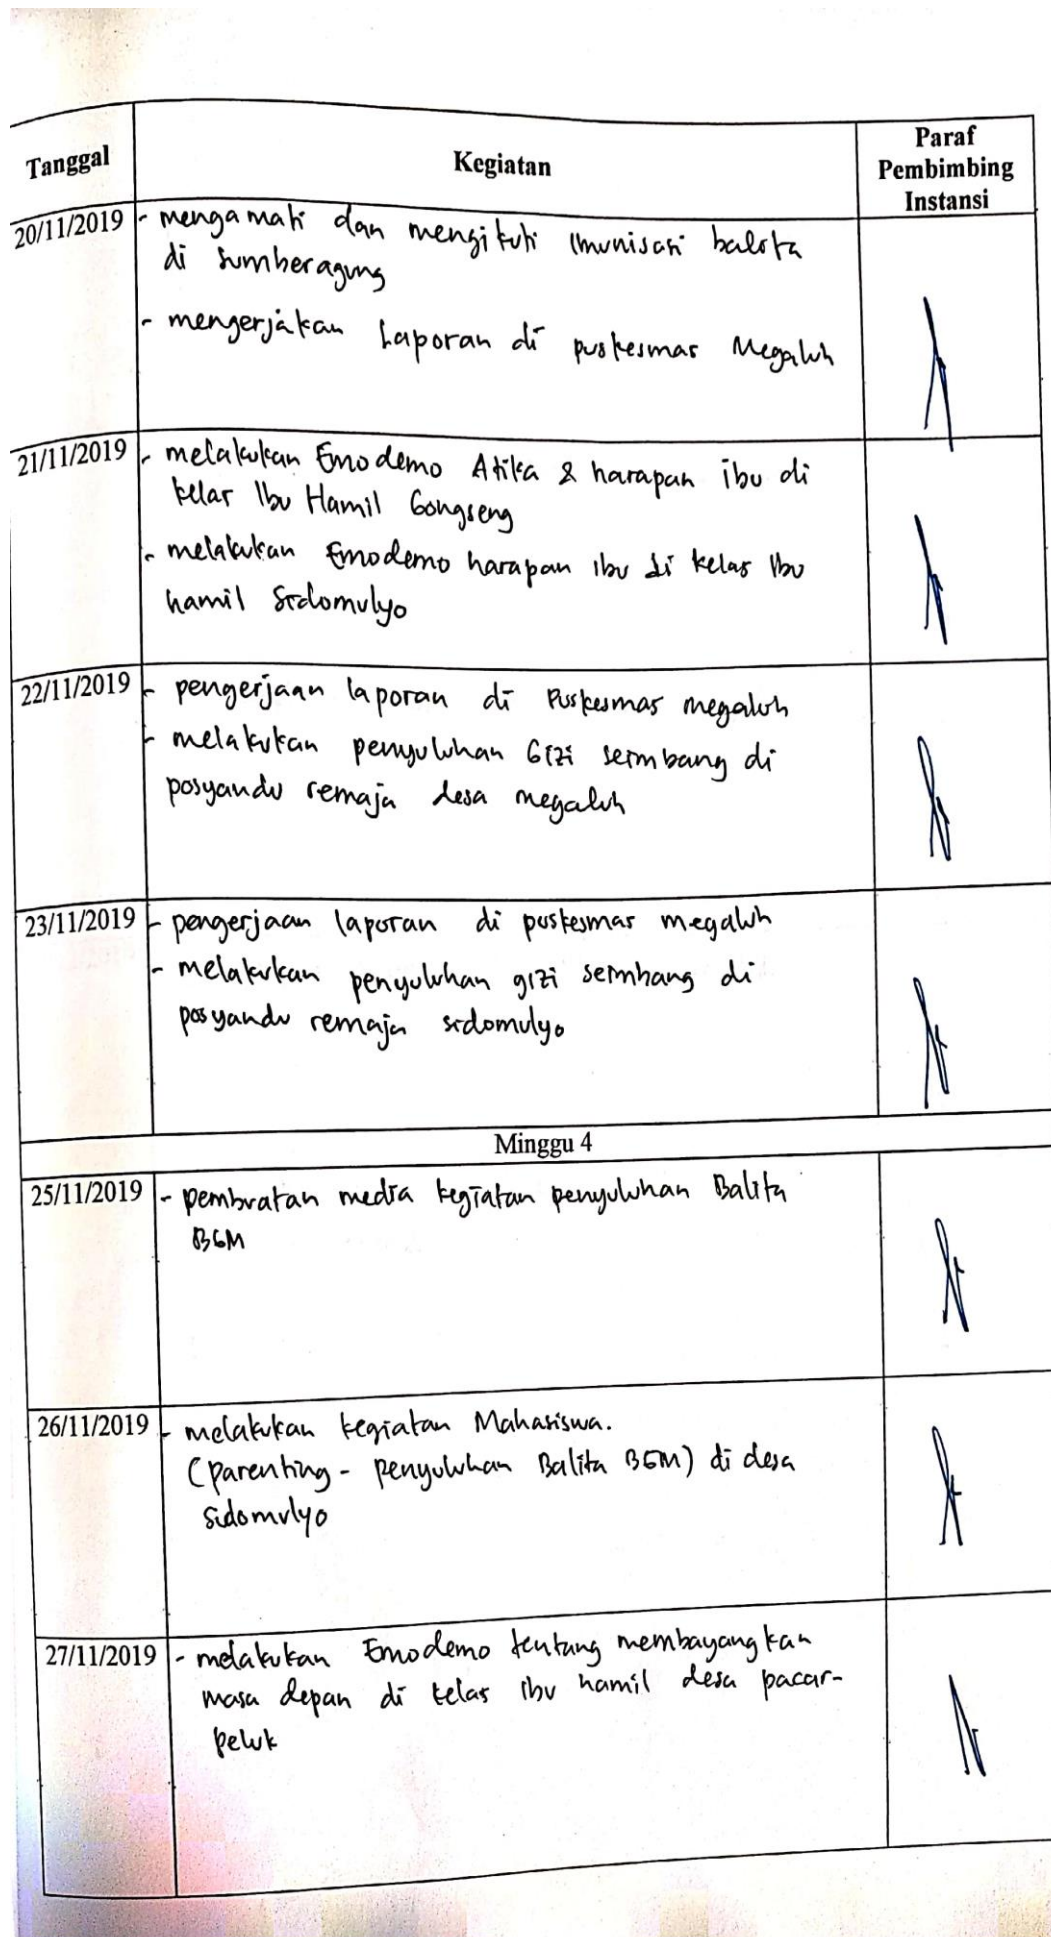 Tanggal
Kegiatan
Paraf
Pembimbing
Instansi
20/11/2019
- mengamati dan mengikuti imunisasi balita
di sumberagung
- mengerjakan Laporan di puskesmas Megaluh
21/11/2019
- melakukan Emodemo Atika & harapan ibu di
kelas Ibu Hamil Gongseng
- melakukan Emodemo harapan ibu di kelas Ibu
hamil Sidomulyo
22/11/2019
- pengerjaan laporan di Puskesmas megaluh
- melakukan penyuluhan Gizi seimbang di
posyandu remaja desa megaluh
23/11/2019
- pengerjaan laporan di puskesmas megaluh
- melakukan penyuluhan gizi seimbang di
posyandu remaja sidomulyo
Minggu 4
25/11/2019
- pembuatan media kegiatan penyuluhan Balita
BGM
26/11/2019
- melakukan kegiatan Mahasiswa.
(parenting - penyuluhan Balita BGM) di desa
sidomulyo
27/11/2019
- melakukan Emodemo tentang membayangkan
masa depan di kelas ibu hamil desa pacar-
peluk